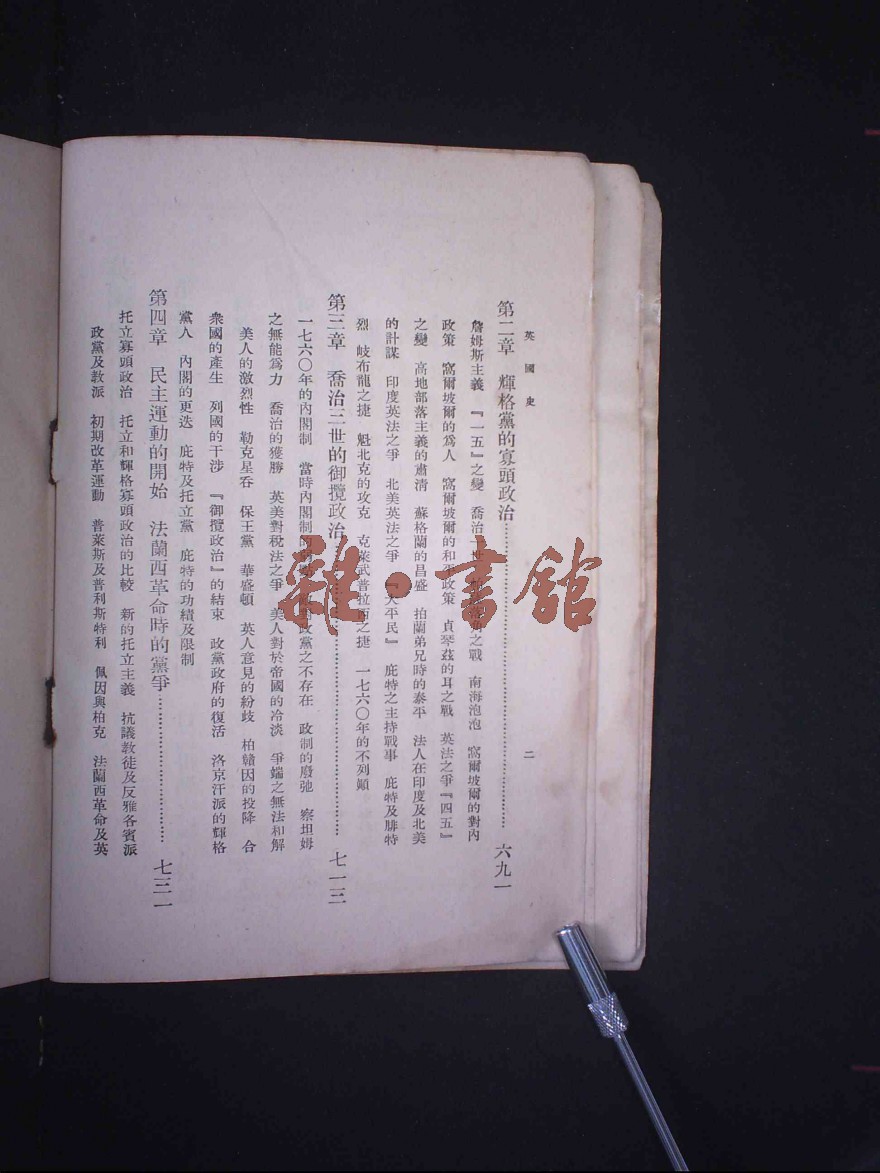 英國史
二
第二章　輝格黨的寡頭政治……六九一
詹姆斯主義　『一五』之變　喬治一世　之戰　南海泡泡　窩爾坡爾的對內
政策　窩爾坡爾的爲人　窩爾坡爾的和平政策　貞琴茲的耳之戰　英法之爭『四五』
之變　高地部落主義的肅清　蘇格蘭的昌盛　拍蘭弟兄時的泰平　法人在印度及北美
的計謀　印度英法之爭　北美英法之爭　『大平民』　庇特之主持戰事　庇特及腓特
烈　岐布龍之捷　魁北克的攻克　克萊武普拉西之捷　一七六〇年的不列顛
第三章　喬治三世的御攬政治……七一三
一七六〇年的內閣制　當時內閣制的　政黨之不存在　政制的廢弛　察坦姆
之無能爲力　喬治的獲勝　英美對稅法之爭　美人對於帝國的冷淡　爭端之無法和解
美人的激烈性　勒克星吞　保王黨　華盛頓　英人意見的紛歧　柏贛因的投降　合
衆國的產生　列國的干涉　『御攬政治』的結束　政黨政府的復活　洛京汗派的輝格
黨人　內閣的更迭　庇特及托立黨　庇特的功績及限制
第四章　民主運動的開始　法蘭西革命時的黨爭……七三一
托立寡頭政治　托立和輝格寡頭政治的比較　新的托立主義　抗議教徒及反雅各賓派
政黨及教派　初期改革運動　普萊斯及普利斯特利　佩因與柏克　法蘭西革命及英
雜·書館